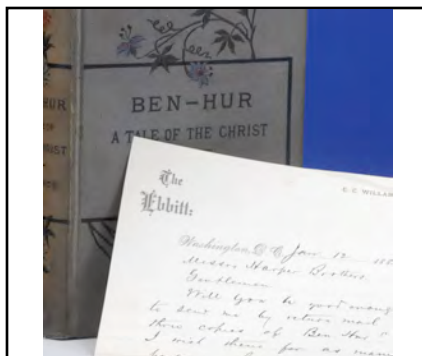 HUR
CHRIST
BEN-HUR
A TALE OF THE CHRIST
The
Ebbitt:
C. C. WILLAR
Washington, D. C. Jan. 12
Messrs Harper Brothers.
Gentlemen
Will you be good enough
to send me by return mail
three copies of "Ben-Hur"
I wish them for as man